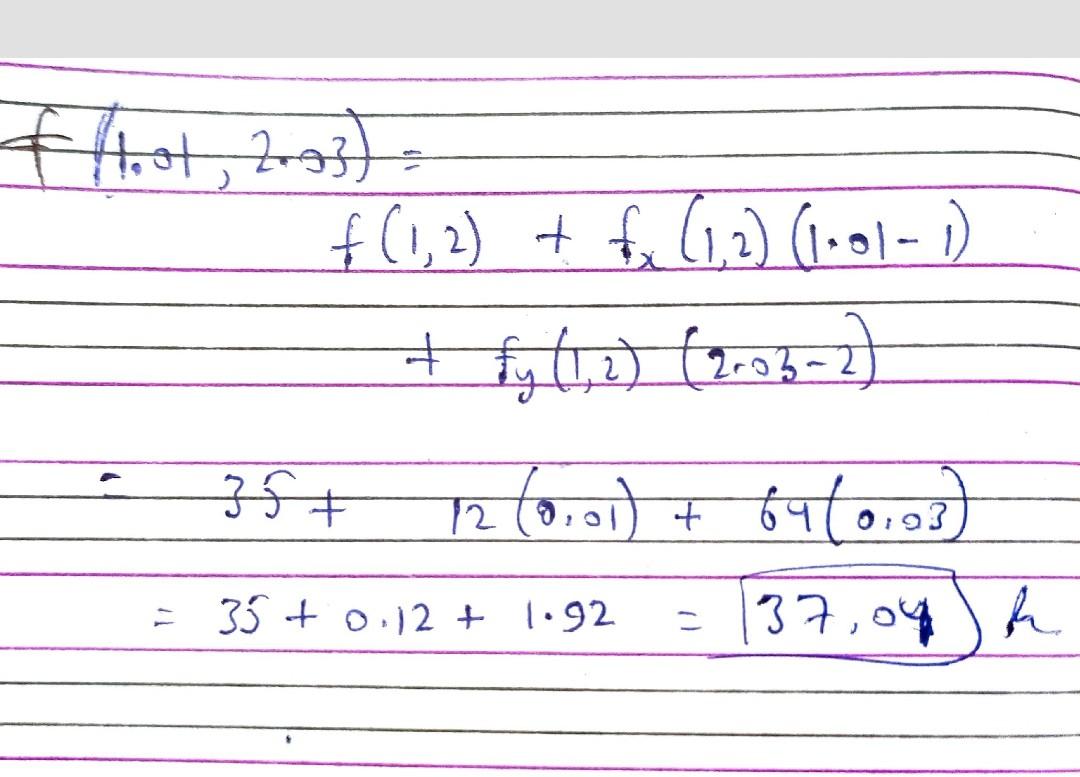 f(1.01, 2.03) =
f(1,2) + fx(1,2)(1.01-1)
+ fy(1,2) (2.03-2)
= 35 + 12(0.01) + 64(0.03)
= 35 + 0.12 + 1.92 = 37.04